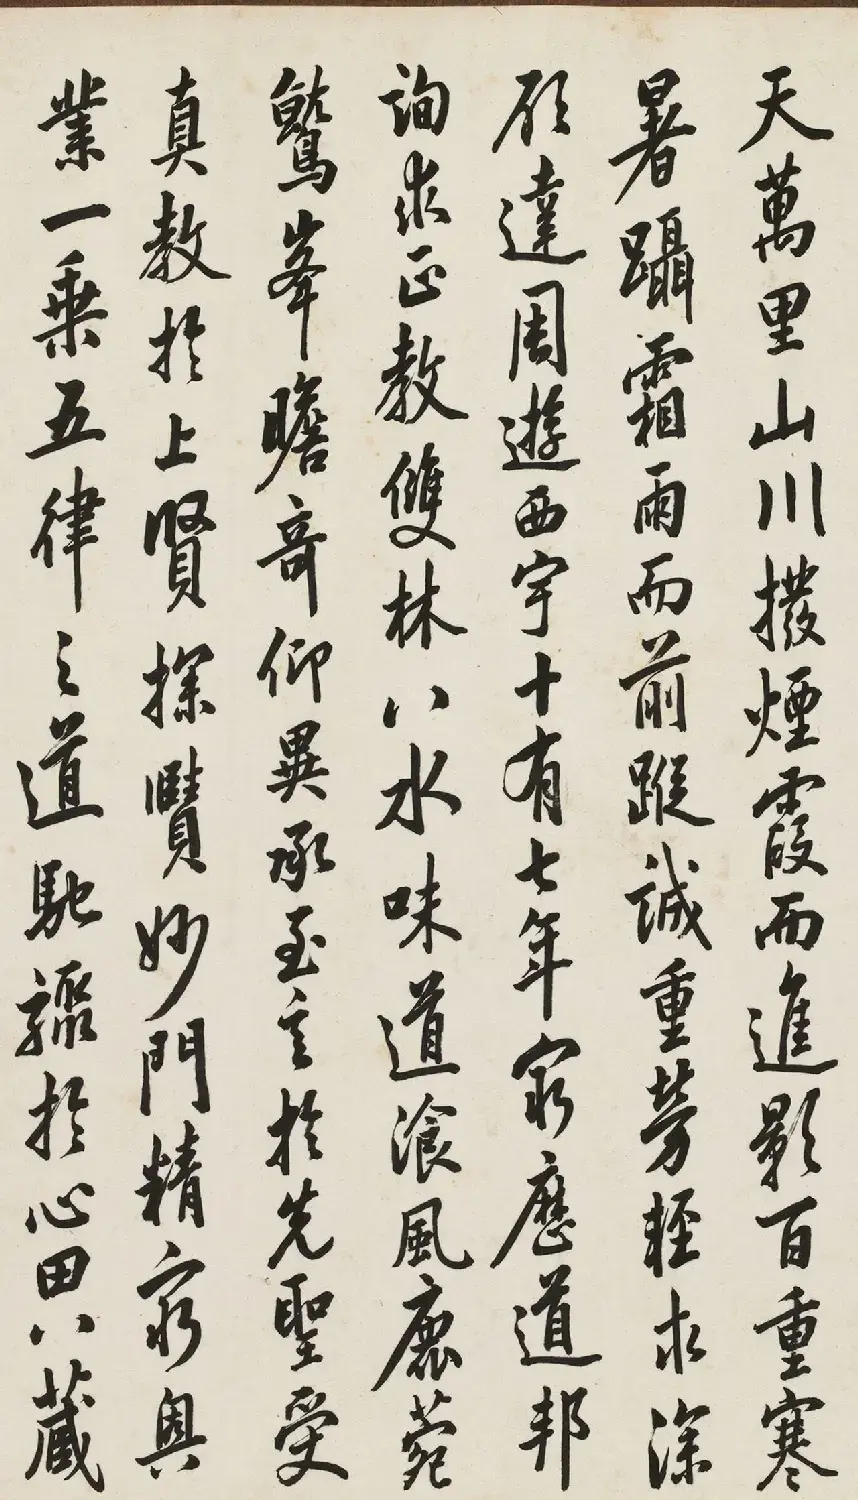 天萬里山川撥煙霞而進影百重寒
暑躡霜雨而前蹤誠重勞輕求深
願達周遊西宇十有七年窮歷道邦
詢求正教雙林八水味道湌風鹿菀
鷲峯瞻奇仰異承至言於先聖受
真教於上賢探賾妙門精窮奧
業一乘五律之道馳驟於心田八藏